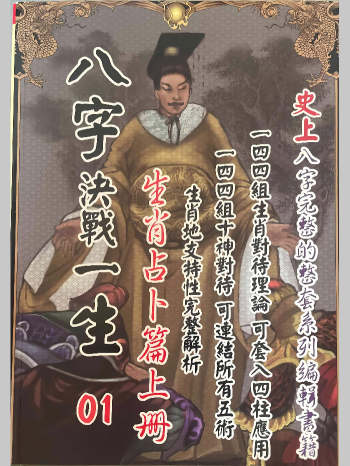 史上八字完整的整套系列編輯書籍
一四四組生肖對待理論 可套入四柱應用
一四四組十神對待 可連結所有五術
生肖地支特性完整解析
生肖占卜篇上冊
八字決戰一生 01